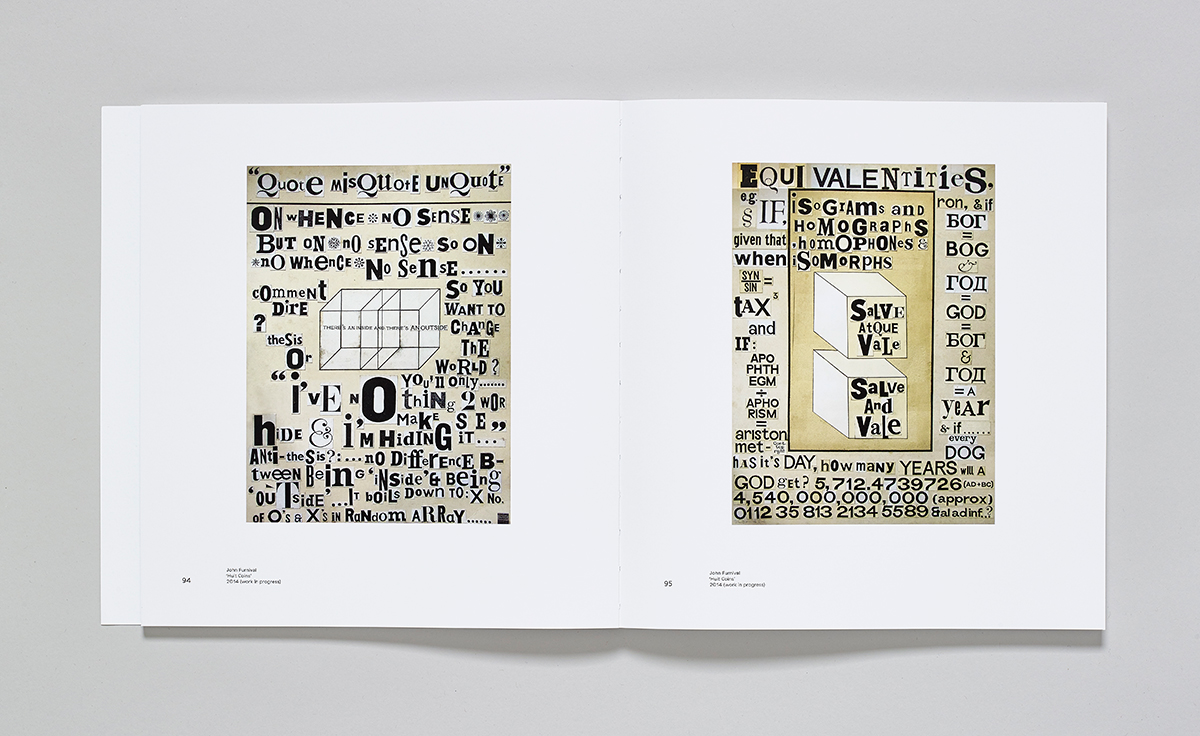 “Quote misQuote unQuote”
ON wHENCE * NO SENSE ***
But ON * NO sense * so ON *
* NO WHENCE * No Sense ......
comment
DiRE
?
theSis
Or
THERE'S AN INSIDE AND THERE'S AN OUTSIDE
So YOU
WANT TO
CHanGE
THE
WoRLD?
You'll only.......
“i'vE NO thing 2 WOR
Make SE”
hiDE & i'm HiDiNG iT...
ANti-theSis?:....no DiFFeRencE B-
tween Being ‘inside’ & Being
‘OUTside’ ...IT boiLs Down TO: X No.
OF O's & X's in RanDom ARRAY ......
94
John Furnival
‘Hult Coins’
2014 (work in progress)
EQUI VALENtitieS,
e.g.
§ IF,
given that
when
SYN
SIN
=
tAX
3
and
IF:
APO
PHTH
EGM
÷
APHO
RISM
=
ariston
met-
iSoGRamS and
HoMOGRaphS
,homOPHONES &
iSoMORPHS
SaLVE
AtQUE
VaLe
SaLve
And
VaLe
ron, & if
БОГ
=
BOG
&
ГОД
=
GOD
=
БОГ
&
ГОД
= A
yEAR
& if......
every
DOG
haS it's DAY, how many YEARS will A
GOD get? 5,712.4739726 (AD+BC)
4,540,000,000,000 (approx)
0112 35 813 2134 5589 & al ad inf..?
95
John Furnival
‘Hult Coins’
2014 (work in progress)